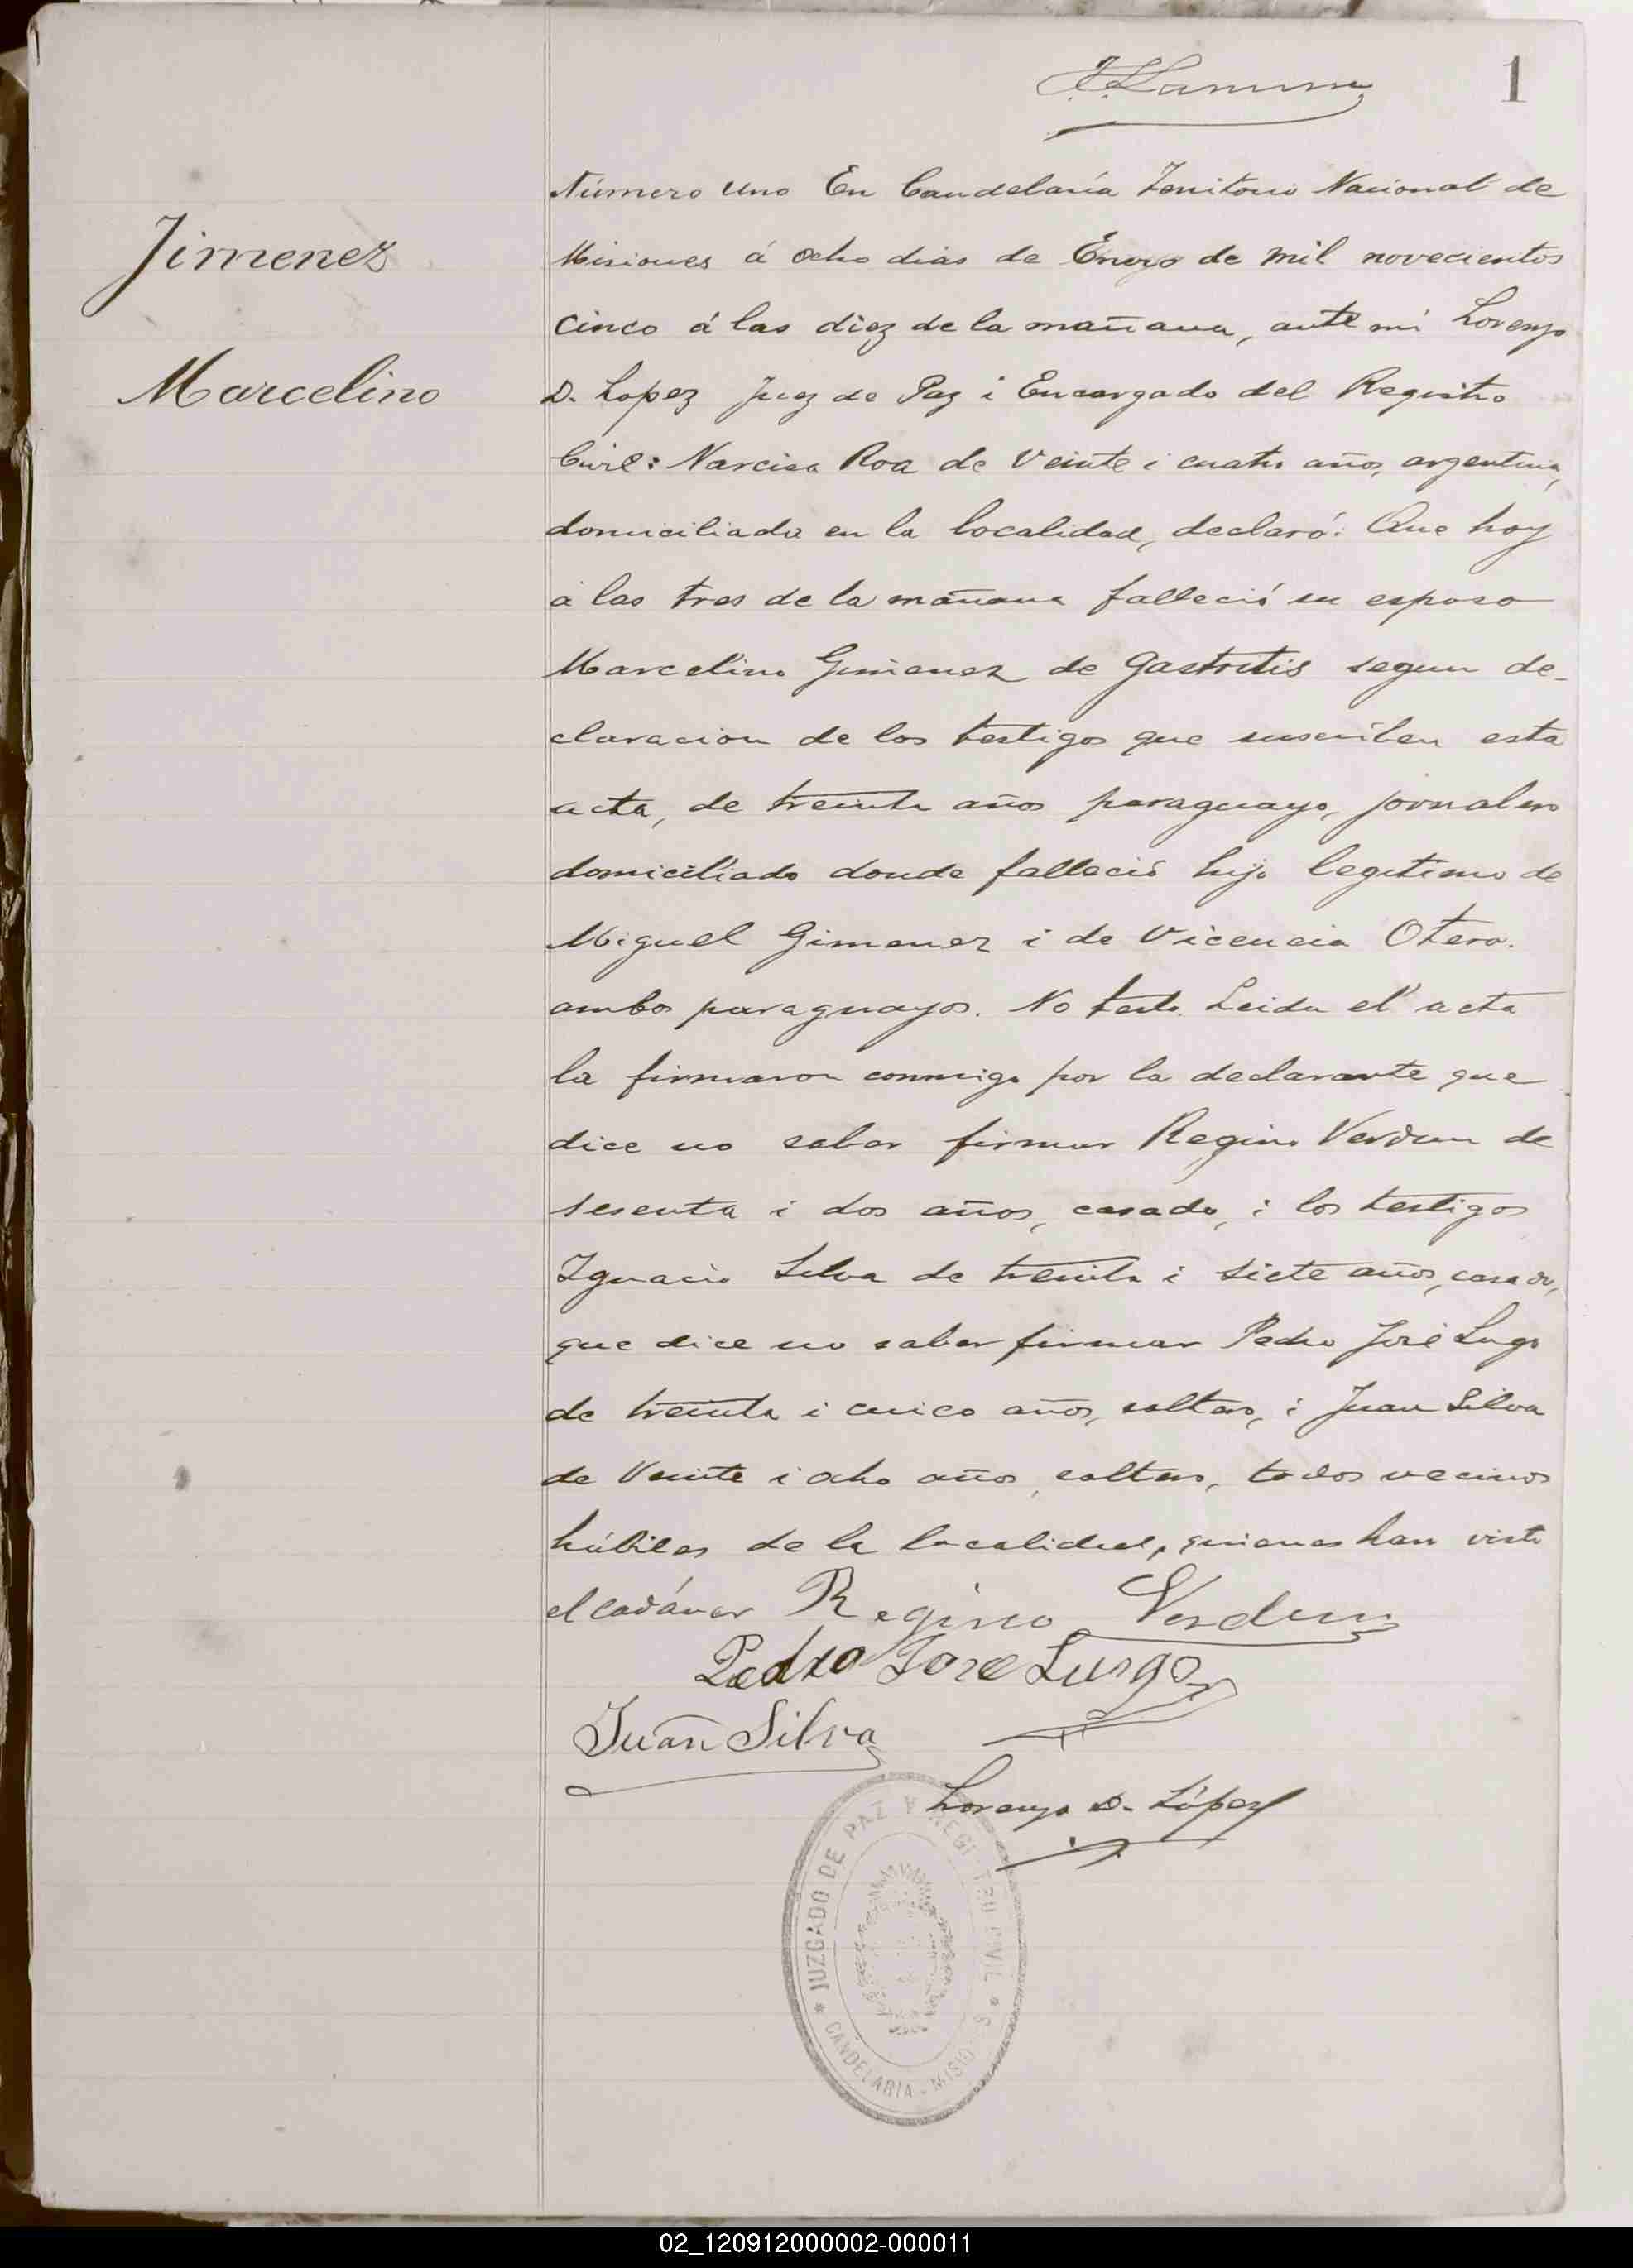 1
Jimenez
Marcelino
Número Uno En Candelaria Territorio Nacional de
Misiones á ocho dias de Enero de mil novecientos
cinco á las diez de la mañana, ante mí Lorenzo
D. Lopez Juez de Paz i Encargado del Registro
Civil: Narcisa Roa de veinte i cuatro años, argentina,
domiciliada en la localidad, declaró: Que hoy
á las tres de la mañana falleció su esposo
Marcelino Gimenez de gastritis segun de-
claracion de los testigos que suscriben esta
acta, de treinta años paraguayo, jornalero
domiciliado donde falleció hijo legitimo de
Miguel Gimenez i de Vicencia Otero.
ambos paraguayos. No testó. Leida el acta
la firmaron conmigo por la declarante que
dice no saber firmar Regino Verdun de
sesenta i dos años, casado, i los testigos
Ignacio Silva de treinta i siete años, casado,
que dice no saber firmar Pedro José Lugo
de treinta i cinco años, soltero, i Juan Silva
de veinte i ocho años, soltero, todos vecinos
hábiles de la localidad, quienes han visto
el cadáver Regino Verdun
Pedro Jose Luogo
Juan Silva
Lorenzo D. López
JUZGADO DE PAZ Y REGISTRO CIVIL
CANDELARIA - MISIONES
02_120912000002-000011